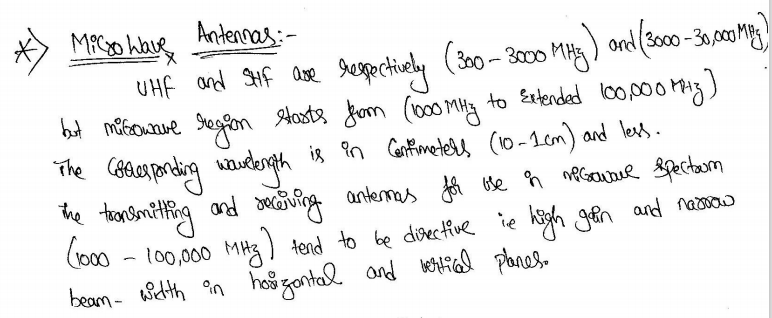 *) Microwave Antennas:-
UHF and SHF are respectively (300-3000 MHz) and (3000-30,000 MHz)
but microwave region starts from (1000 MHz to Extended 100,000 MHz)
The Corresponding wavelength is in Centimeters (10-1cm) and less.
The transmitting and receiving antennas for use in microwave spectrum
(1000 - 100,000 MHz) tend to be directive ie high gain and narrow
beam-width in horizontal and vertical planes.